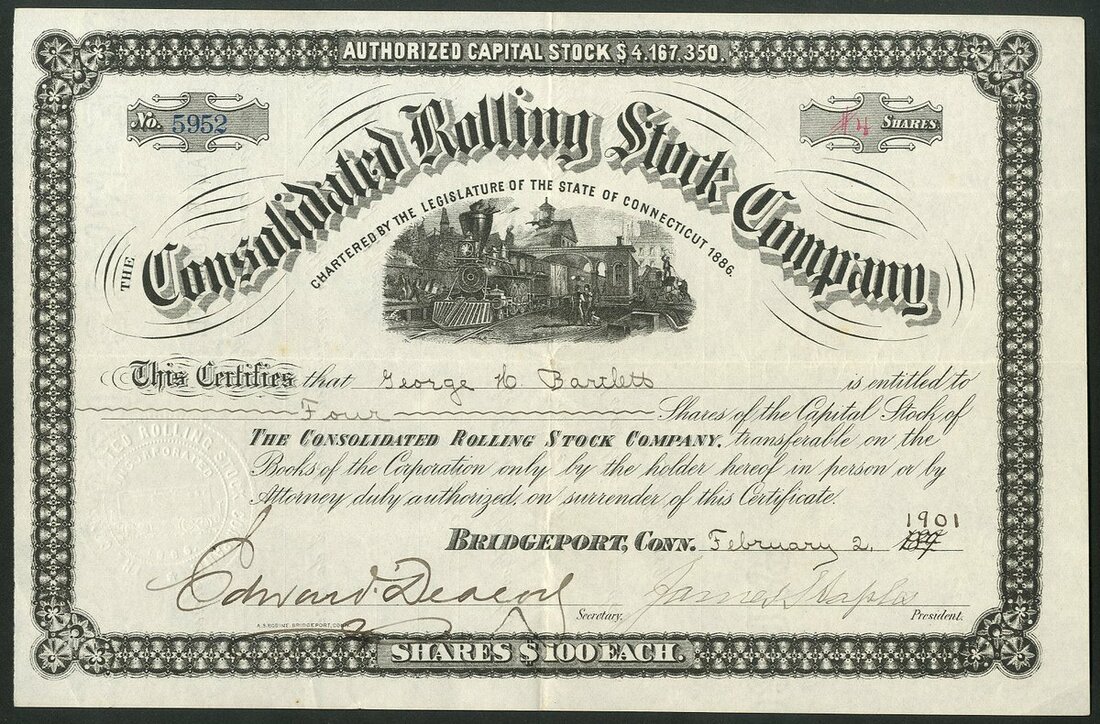 AUTHORIZED CAPITAL STOCK $4,167,350.
No. 5952
4 SHARES.
THE Consolidated Rolling Stock Company
CHARTERED BY THE LEGISLATURE OF THE STATE OF CONNECTICUT 1886.
This Certifies that George H. Bartlett is entitled to
Four Shares of the Capital Stock of
THE CONSOLIDATED ROLLING STOCK COMPANY, transferable on the
Books of the Corporation only by the holder hereof in person or by
Attorney duly authorized, on surrender of this Certificate.
ATED ROLLING STOCK
INCORPORATED
1901
BRIDGEPORT, CONN. February 2,
Edward Deacon James Staples
Secretary. President.
SHARES $100 EACH.